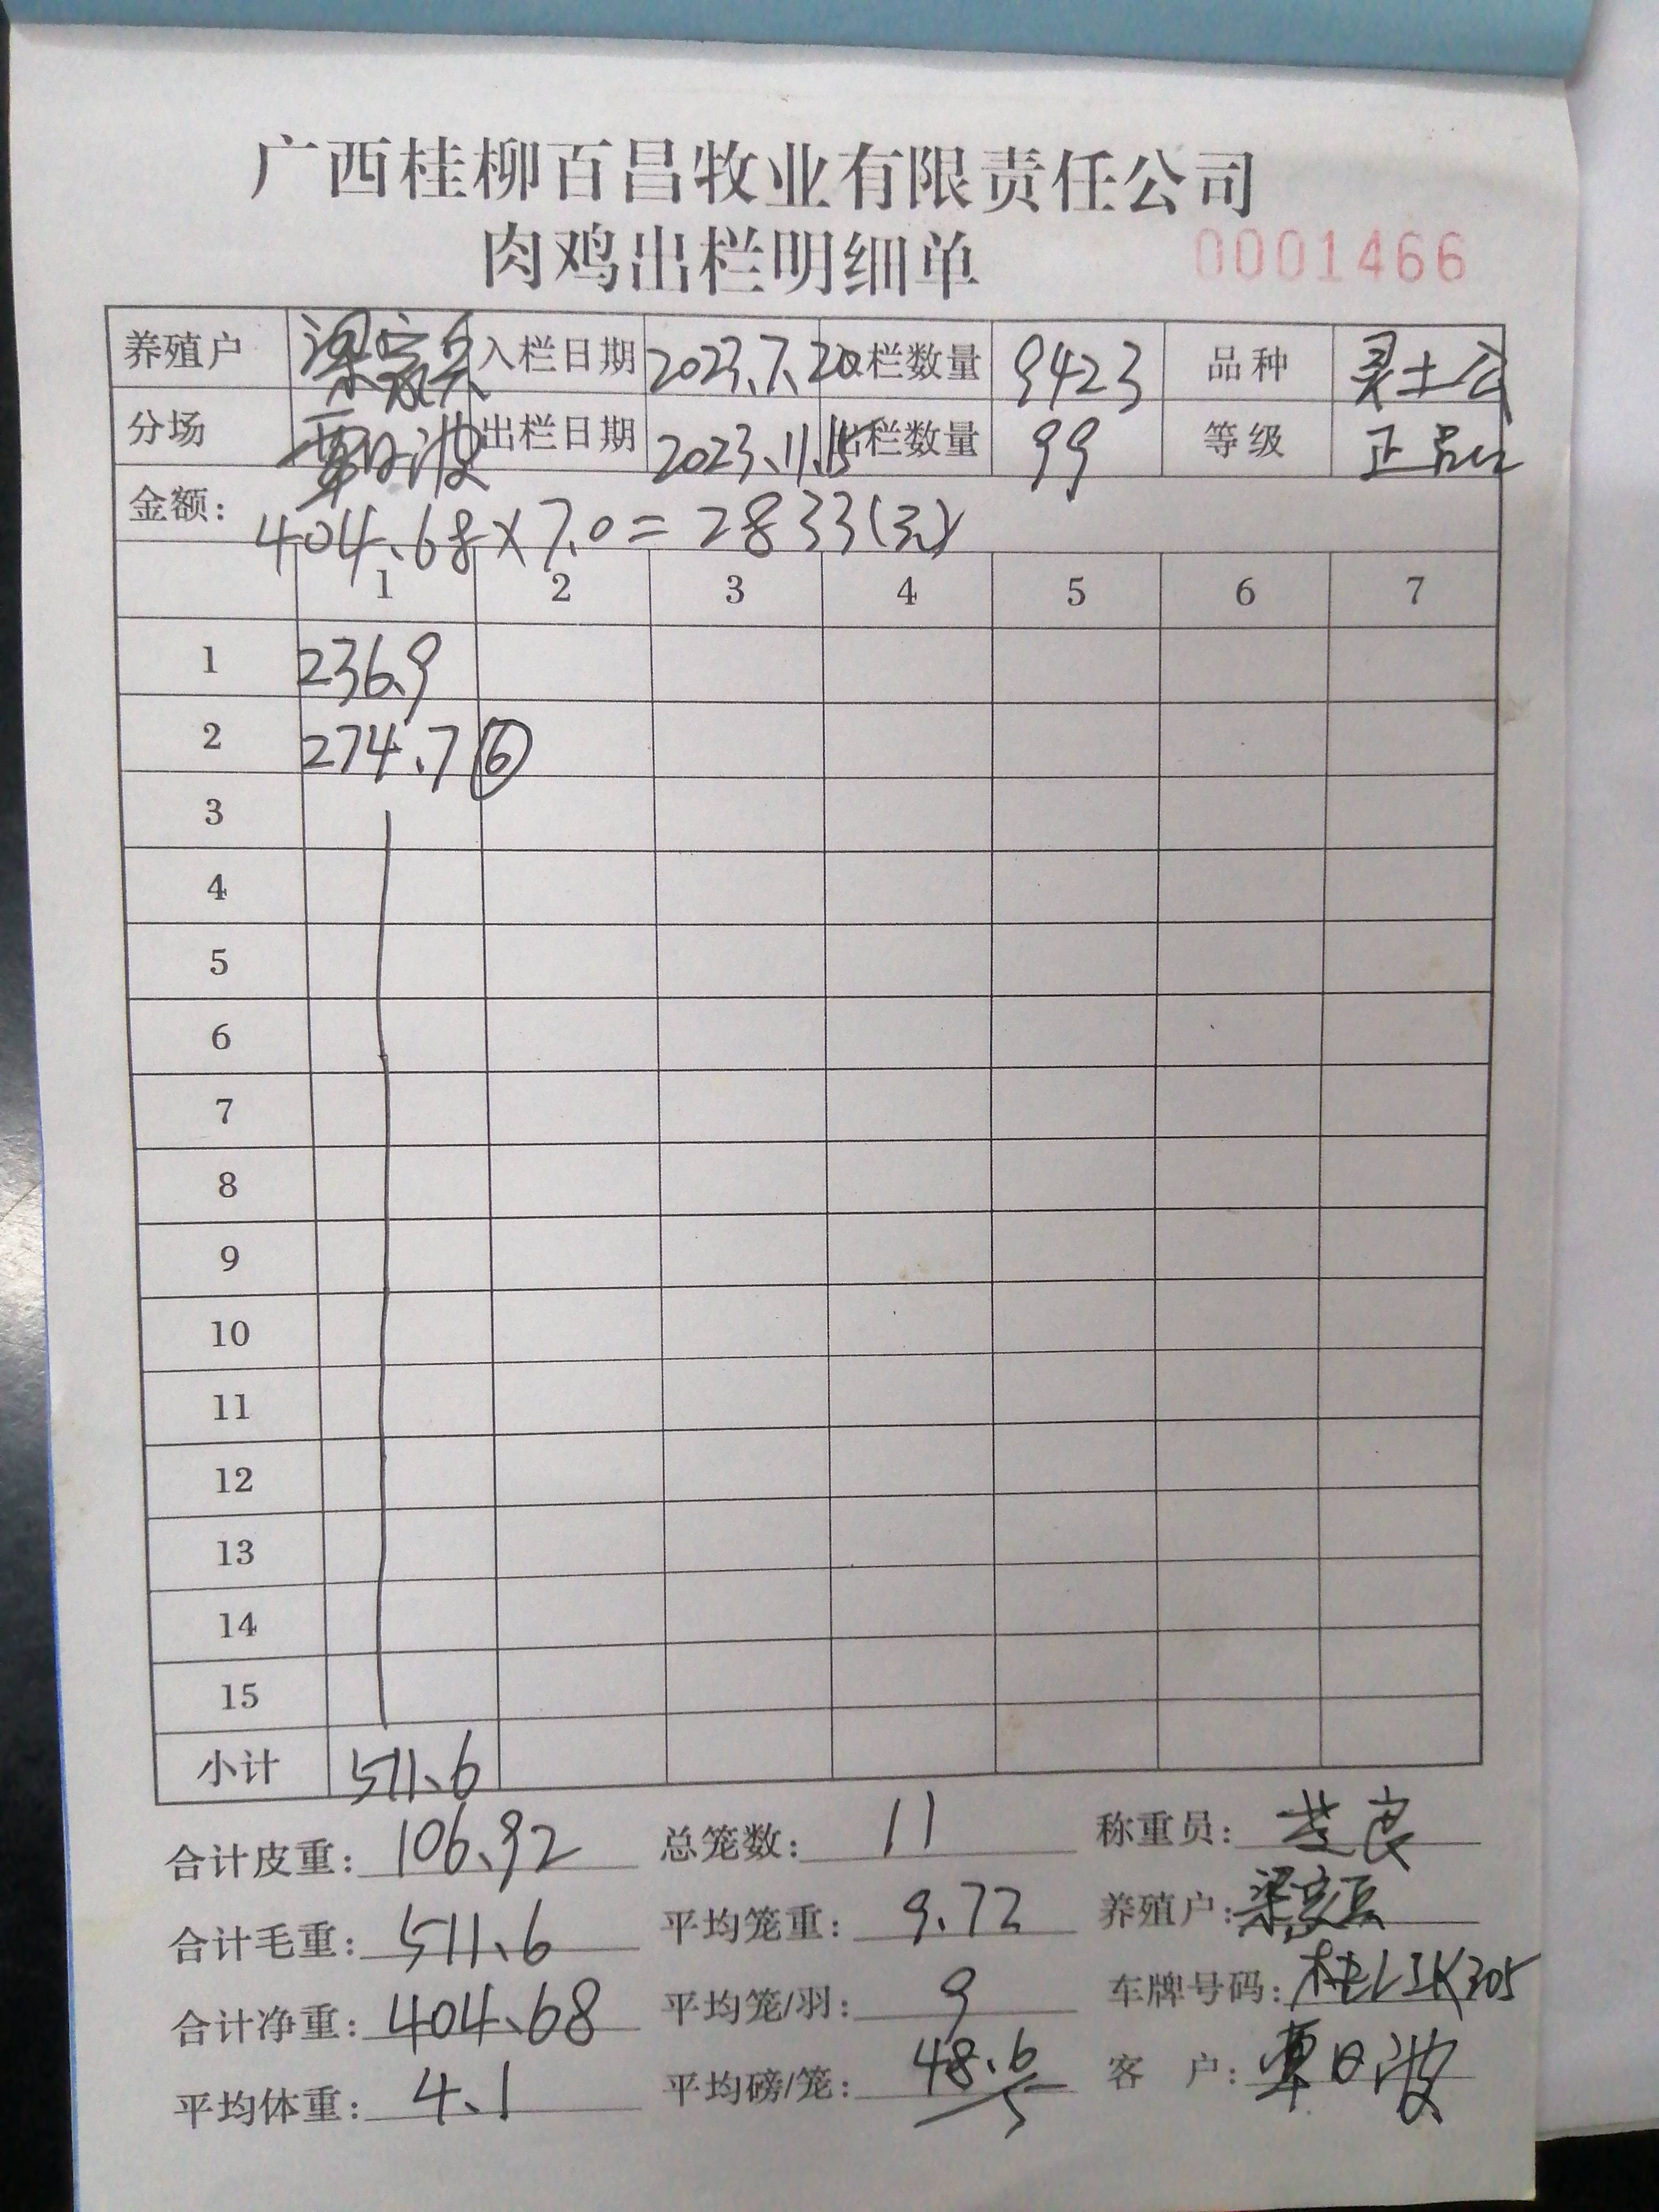 广西桂柳百昌牧业有限责任公司
肉鸡出栏明细单 0001466
养殖户 入栏日期 2023.7.20 栏数量 9423 品种 灵土公
分场 覃日波 出栏日期 2023.11.15 栏数量 99 等级 正品
金额: 404.68×7.0=2833(元)
1 2 3 4 5 6 7
1 236.9
2 274.7 ⑥
3
4
5
6
7
8
9
10
11
12
13
14
15
小计 511.6
合计皮重: 106.92 总笼数: 11 称重员:
合计毛重: 511.6 平均笼重: 9.72 养殖户:
合计净重: 404.68 平均笼/羽: 9 车牌号码:
平均体重: 4.1 平均磅/笼: 48.6/5 客 户: 覃日波